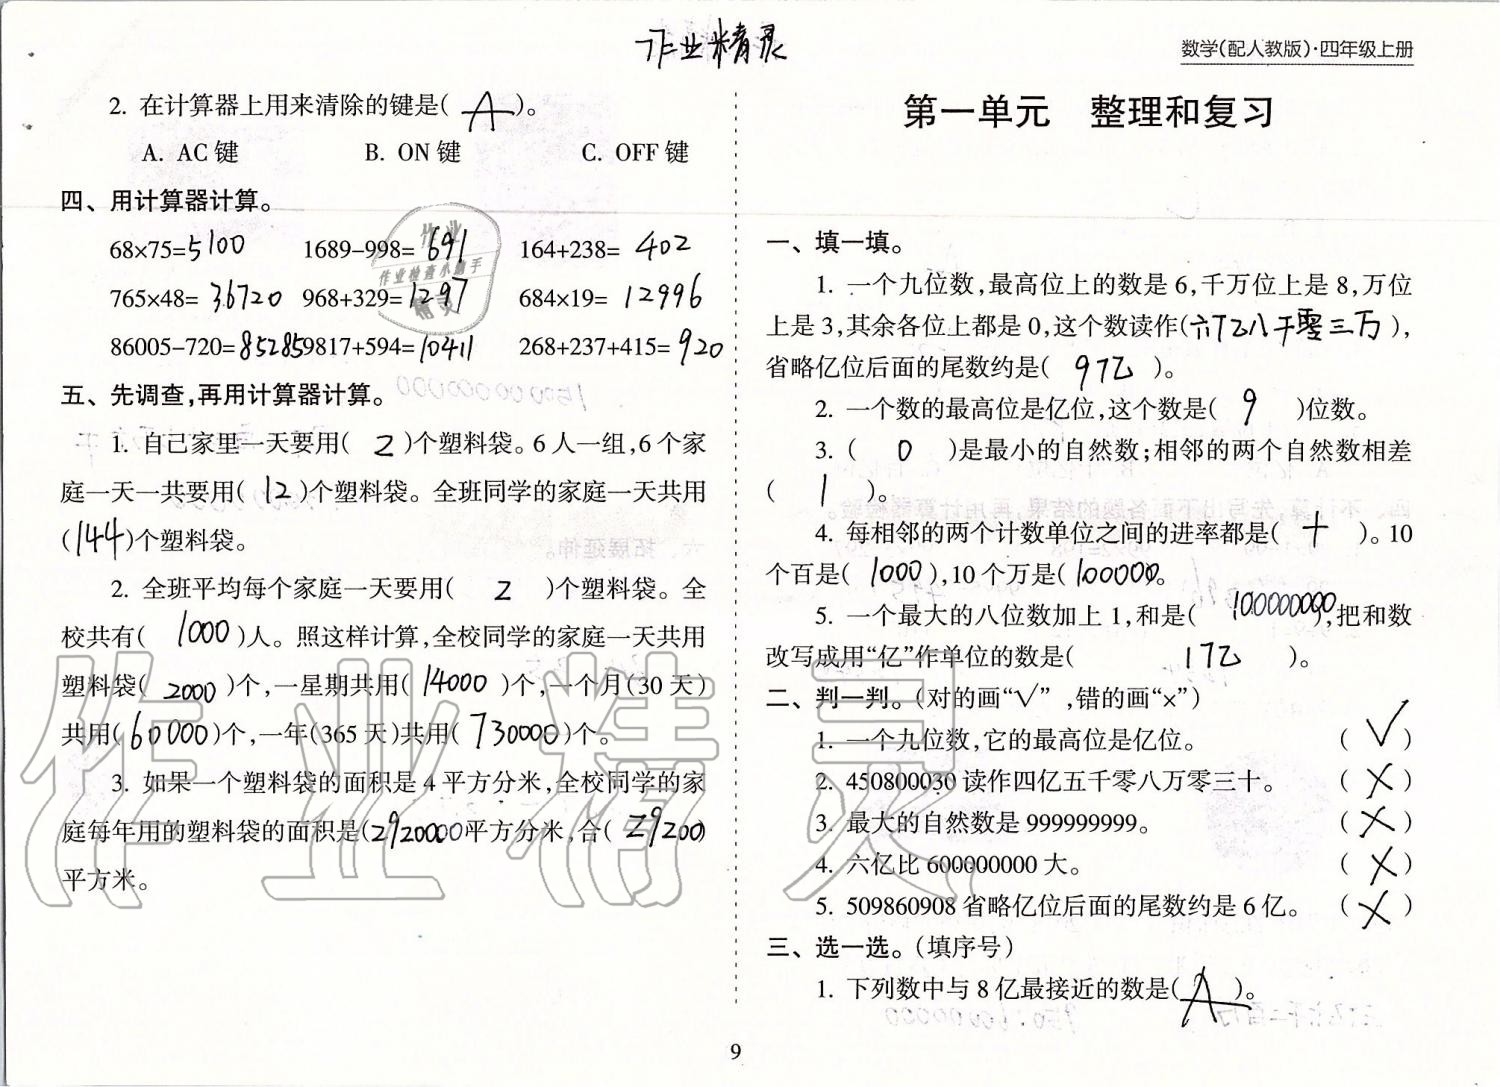 作业精灵
数学(配人教版)·四年级上册
2. 在计算器上用来清除的键是( A )。
A. AC 键 B. ON 键 C. OFF 键
四、用计算器计算。
68×75=5100 1689-998=691 164+238=402
765×48=36720 968+329=1297 684×19=12996
86005-720=85285 9817+594=10411 268+237+415=920
五、先调查,再用计算器计算。
1. 自己家里一天要用( 2 )个塑料袋。6 人一组,6 个家
庭一天一共要用( 12 )个塑料袋。全班同学的家庭一天共用
(144)个塑料袋。
2. 全班平均每个家庭一天要用( 2 )个塑料袋。全
校共有( 1000 )人。照这样计算,全校同学的家庭一天共用
塑料袋( 2000 )个,一星期共用( 14000 )个,一个月(30 天)
共用(60000)个,一年(365 天)共用( 730000)个。
3. 如果一个塑料袋的面积是 4 平方分米,全校同学的家
庭每年用的塑料袋的面积是(2920000平方分米,合( 29200)
平方米。
第一单元 整理和复习
一、填一填。
1. 一个九位数,最高位上的数是 6,千万位上是 8,万位
上是 3,其余各位上都是 0,这个数读作(六亿八千零三万),
省略亿位后面的尾数约是( 9亿 )。
2. 一个数的最高位是亿位,这个数是( 9 )位数。
3. ( 0 )是最小的自然数;相邻的两个自然数相差
( 1 )。
4. 每相邻的两个计数单位之间的进率都是( 十 )。10
个百是( 1000 ),10 个万是(100000。
5. 一个最大的八位数加上 1,和是( 100000000),把和数
改写成用“亿”作单位的数是( 1亿 )。
二、判一判。(对的画“√”,错的画“×”)
1. 一个九位数,它的最高位是亿位。 ( √ )
2. 450800030 读作四亿五千零八万零三十。 ( × )
3. 最大的自然数是 999999999。 ( × )
4. 六亿比 600000000 大。 ( × )
5. 509860908 省略亿位后面的尾数约是 6 亿。 ( × )
三、选一选。(填序号)
1. 下列数中与 8 亿最接近的数是( A )。
9
作业
作业检查小助手
精灵
作业精灵